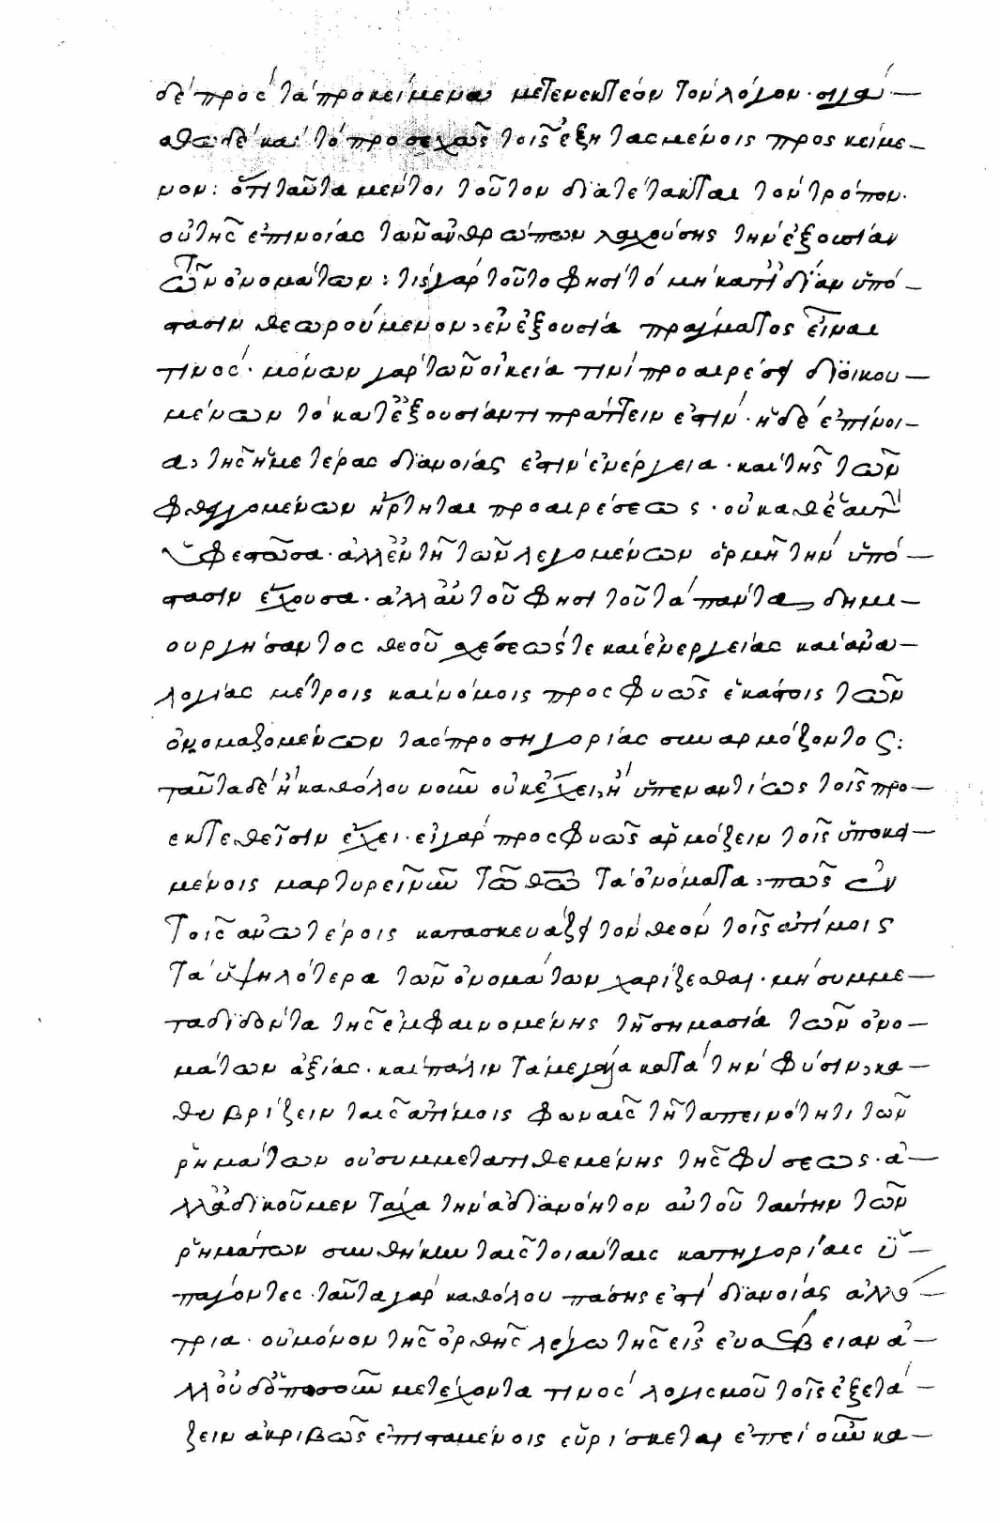 δὲ πρὸς τὰ προκείμενα μετενεκτέον τὸν λόγον·
δὲ καὶ τὸ προσεχῶς τοῖς ἐξητασμένοις προσκείμε-
νον: ὅτι ταῦτα μέντοι τοῦτον διατέτακται τὸν τρόπον·
οὐ τῆς ἐπινοίας τῶν ἀνθρώπων λαχούσης τὴν ἐξουσίαν
τῶν ὀνομάτων: τίς γὰρ τοῦτο φησὶ τὸ μὴ κατ' ἰδίαν ὑπό-
στασιν θεωρούμενον, ἐν ἐξουσία πράγματος εἶναι
τινός· μόνων γὰρ τῶν οἰκεία τινὶ προαιρέσει διοικου-
μένων τὸ κατ' ἐξουσίαν τι πράττειν ἐστίν· ἡ δὲ ἐπίνοι-
α, τῆς ἡμετέρας διανοίας ἐστὶν ἐνέργεια· καὶ τῆς τῶν
φθεγγομένων ἤρτηται προαιρέσεως· οὐ καθ' ἑαυτὴν
ὑφεστῶσα· ἀλλ' ἐν τῆ τῶν λεγομένων ὁρμῆ τὴν ὑπό-
στασιν ἔχουσα· ἀλλ' αὐτοῦ φησι τοῦ τὰ πάντα δημι-
ουργήσαντος θεοῦ σχέσεώς τε καὶ ἐνεργείας καὶ ἀνα-
λογίας μέτροις καὶ νόμοις προσφυῶς ἑκάστοις τῶν
ὀνομαζομένων τὰς προσηγορίας συναρμόζοντος:
ταῦτα δὲ ἢ καθόλου νοῦν οὐκ ἔχει, ἢ ὑπεναντίως τοῖς προ-
εκτεθεῖσιν ἔχει· εἰ γὰρ προσφυῶς ἁρμόζειν τοῖς ὑποκει-
μένοις μαρτυρεῖ νῦν τῶ θεῶ τὰ ὀνόματα, πῶς ἐν
τοῖς ἀνωτέροις κατασκευάζει τὸν θεὸν τοῖς ἀτίμοις
τὰ ὑψηλότερα τῶν ὀνομάτων χαρίζεσθαι· μὴ συμμε-
ταδιδόντα τῆς ἐμφαινομένης τῆ σημασία τῶν ὀνο-
μάτων ἀξίας· καὶ πάλιν τὰ μεγάλα κατὰ τὴν φύσιν, κα-
θυβρίζειν ταῖς ἀτίμοις φωναῖς τῆ ταπεινότητι τῶν
ῥημάτων οὐ συμμετατιθεμένης τῆς φύσεως· ἀ-
λλ' ἀδικοῦμεν τάχα τὴν ἀδιανόητον αὐτοῦ ταύτην τῶν
ῥημάτων συνθήκην ταῖς τοιαύταις κατηγορίαις ὑ-
πάγοντες· ταῦτα γὰρ καθόλου πάσης ἐστὶ διανοίας ἀλλό-
τρια· οὐ μόνον τῆς ὀρθῆς λέγω τῆς εἰς εὐσέβειαν ἀ-
λλ' οὐδ' ὁπωσοῦν μετέχοντα τινὸς λογισμοῦ τοῖς ἐξετά-
ζειν ἀκριβῶς ἐπισταμένοις εὑρίσκεται ἐπεὶ οὖν κα-